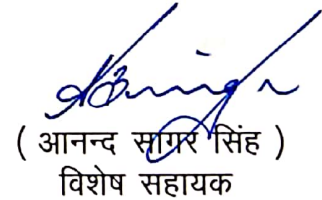 ( आनन्द सागर सिंह )
विशेष सहायक